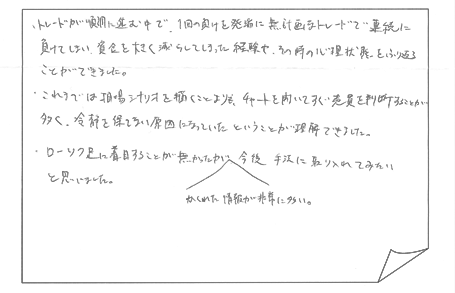 ・トレードが順調に進む中で、1回の負けを発端に無計画なトレードで連続に
負けてしまい、資金を大きく減らしてしまった経験や、その時の心理状態をふり返る
ことができました。
・これまでは相場シナリオを描くことよりも、チャートを開いてすぐ売買を判断することが
多く、冷静を保てない原因になっていたということが理解できました。
・ローソク足に着目することが無かったが、今後手法に取り入れてみたい
と思いました。
かくれた情報が非常に多い。